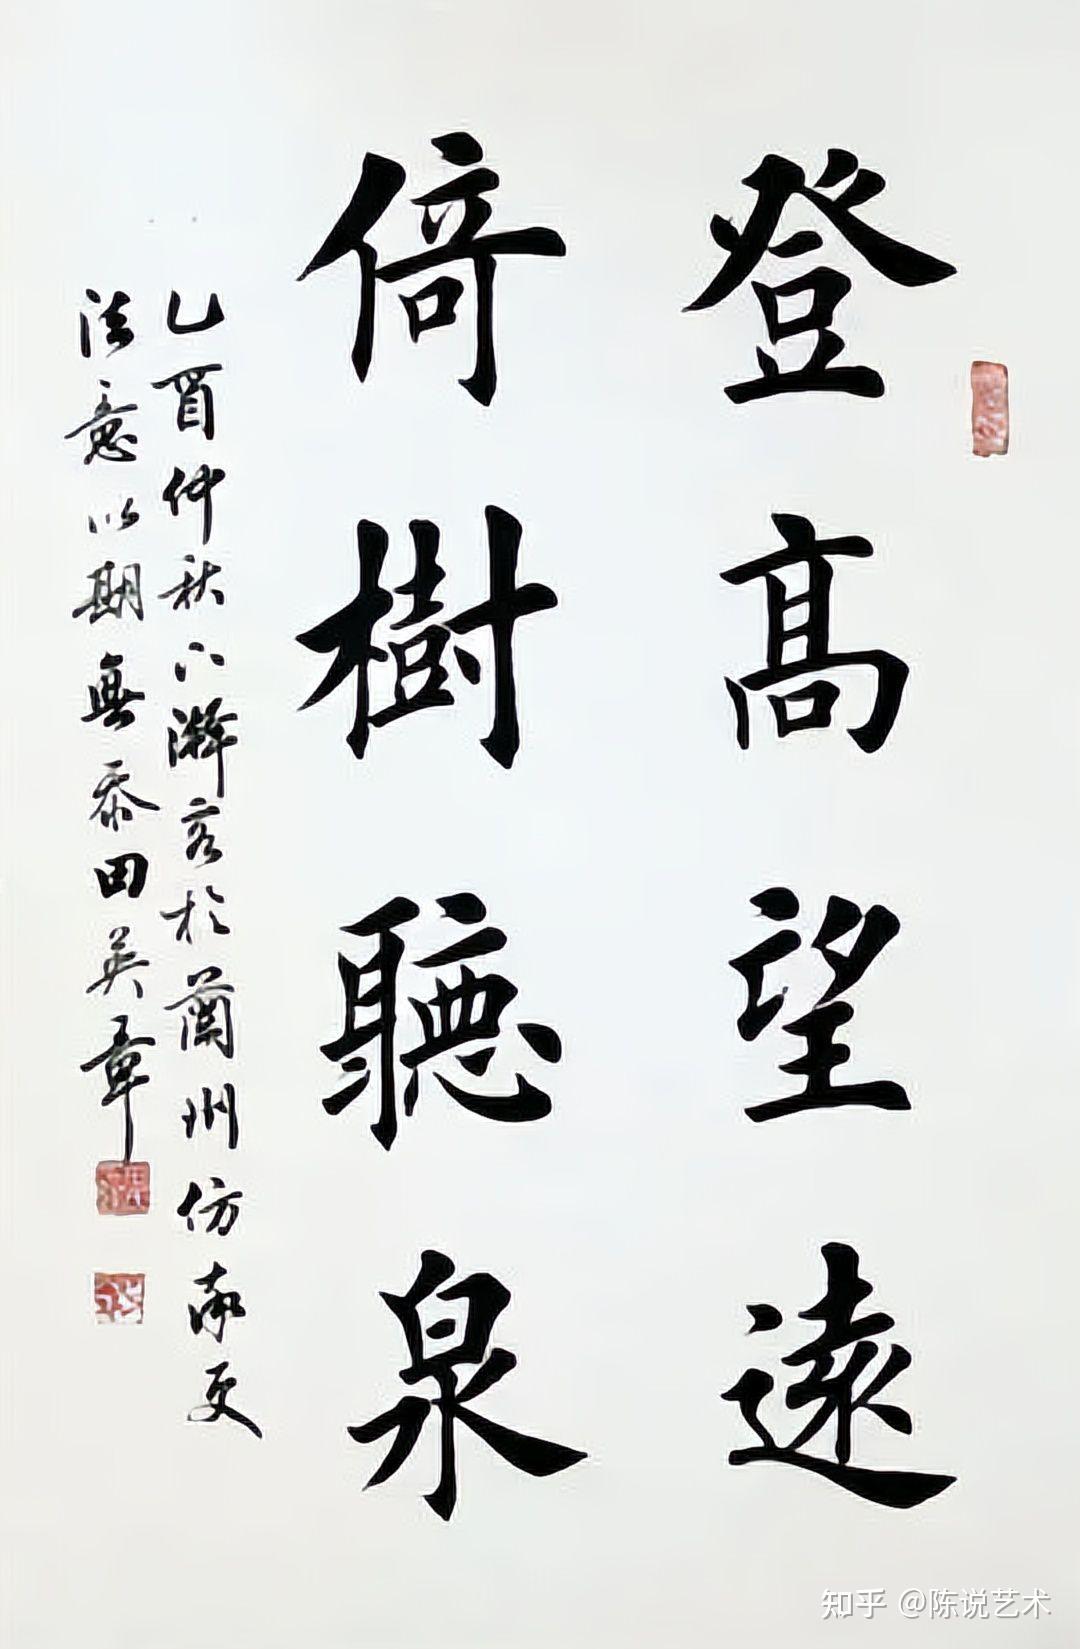 登高望遠
倚樹聽泉
乙酉仲秋下澣客於蘭州仿率更
法意以期無忝田英章
知乎 @陈说艺术